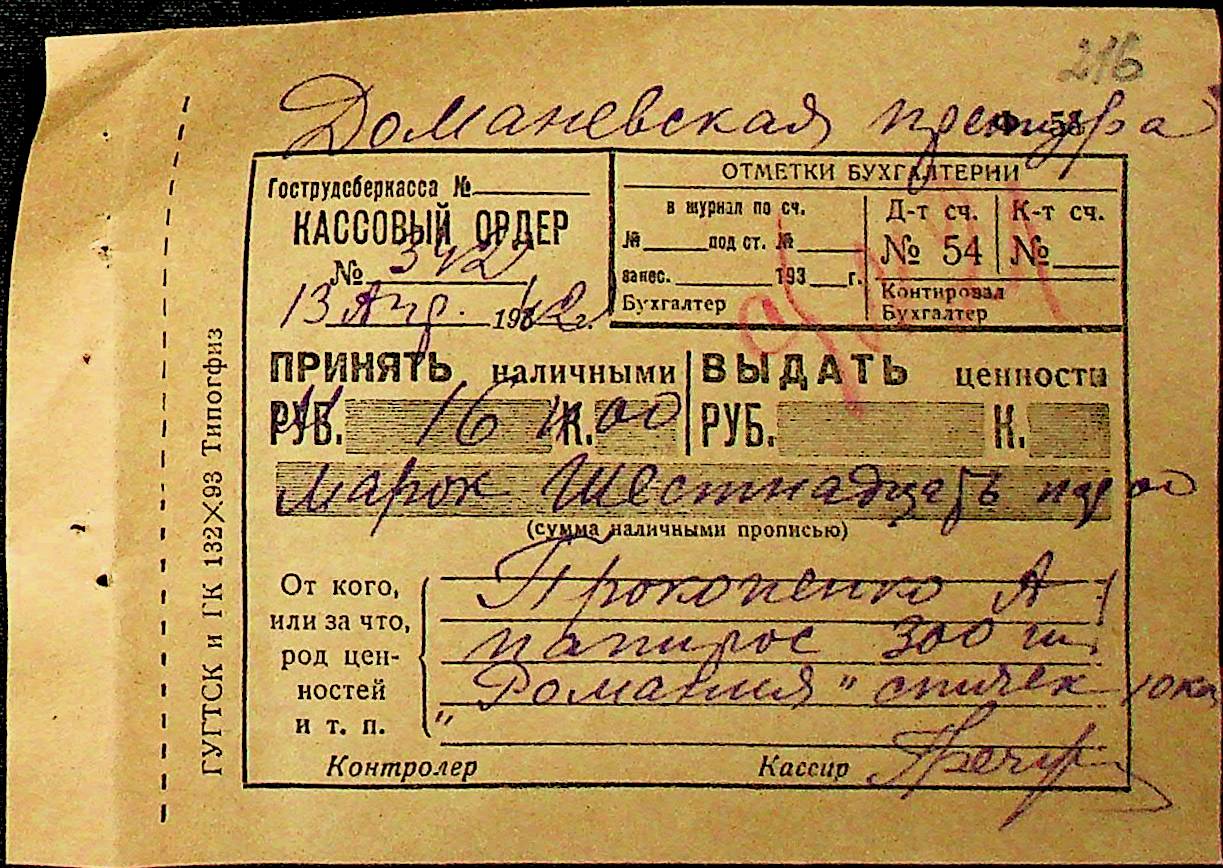 216
Доманевская претура
Ф. 58
Гострудсберкасса №
КАССОВЫЙ ОРДЕР
№ 342
13 Авг. 1942 г.
ОТМЕТКИ БУХГАЛТЕРИИ
в журнал по сч.
№ под ст. №
занес. 193 г.
Бухгалтер
Д-т сч. К-т сч.
№ 54 №
Контировал
Бухгалтер
ПРИНЯТЬ наличными ВЫДАТЬ ценности
РУБ. 16 К. 00 РУБ. К.
Марок Шестнадцать 00
(сумма наличными прописью)
От кого,
или за что,
род цен-
ностей
и т. п.
Прокопенко А
папирос 300 ш
"Романия" спичек 10 ко
Контролер Кассир
ГУГТСК и ГК 132×93 Типогфиз